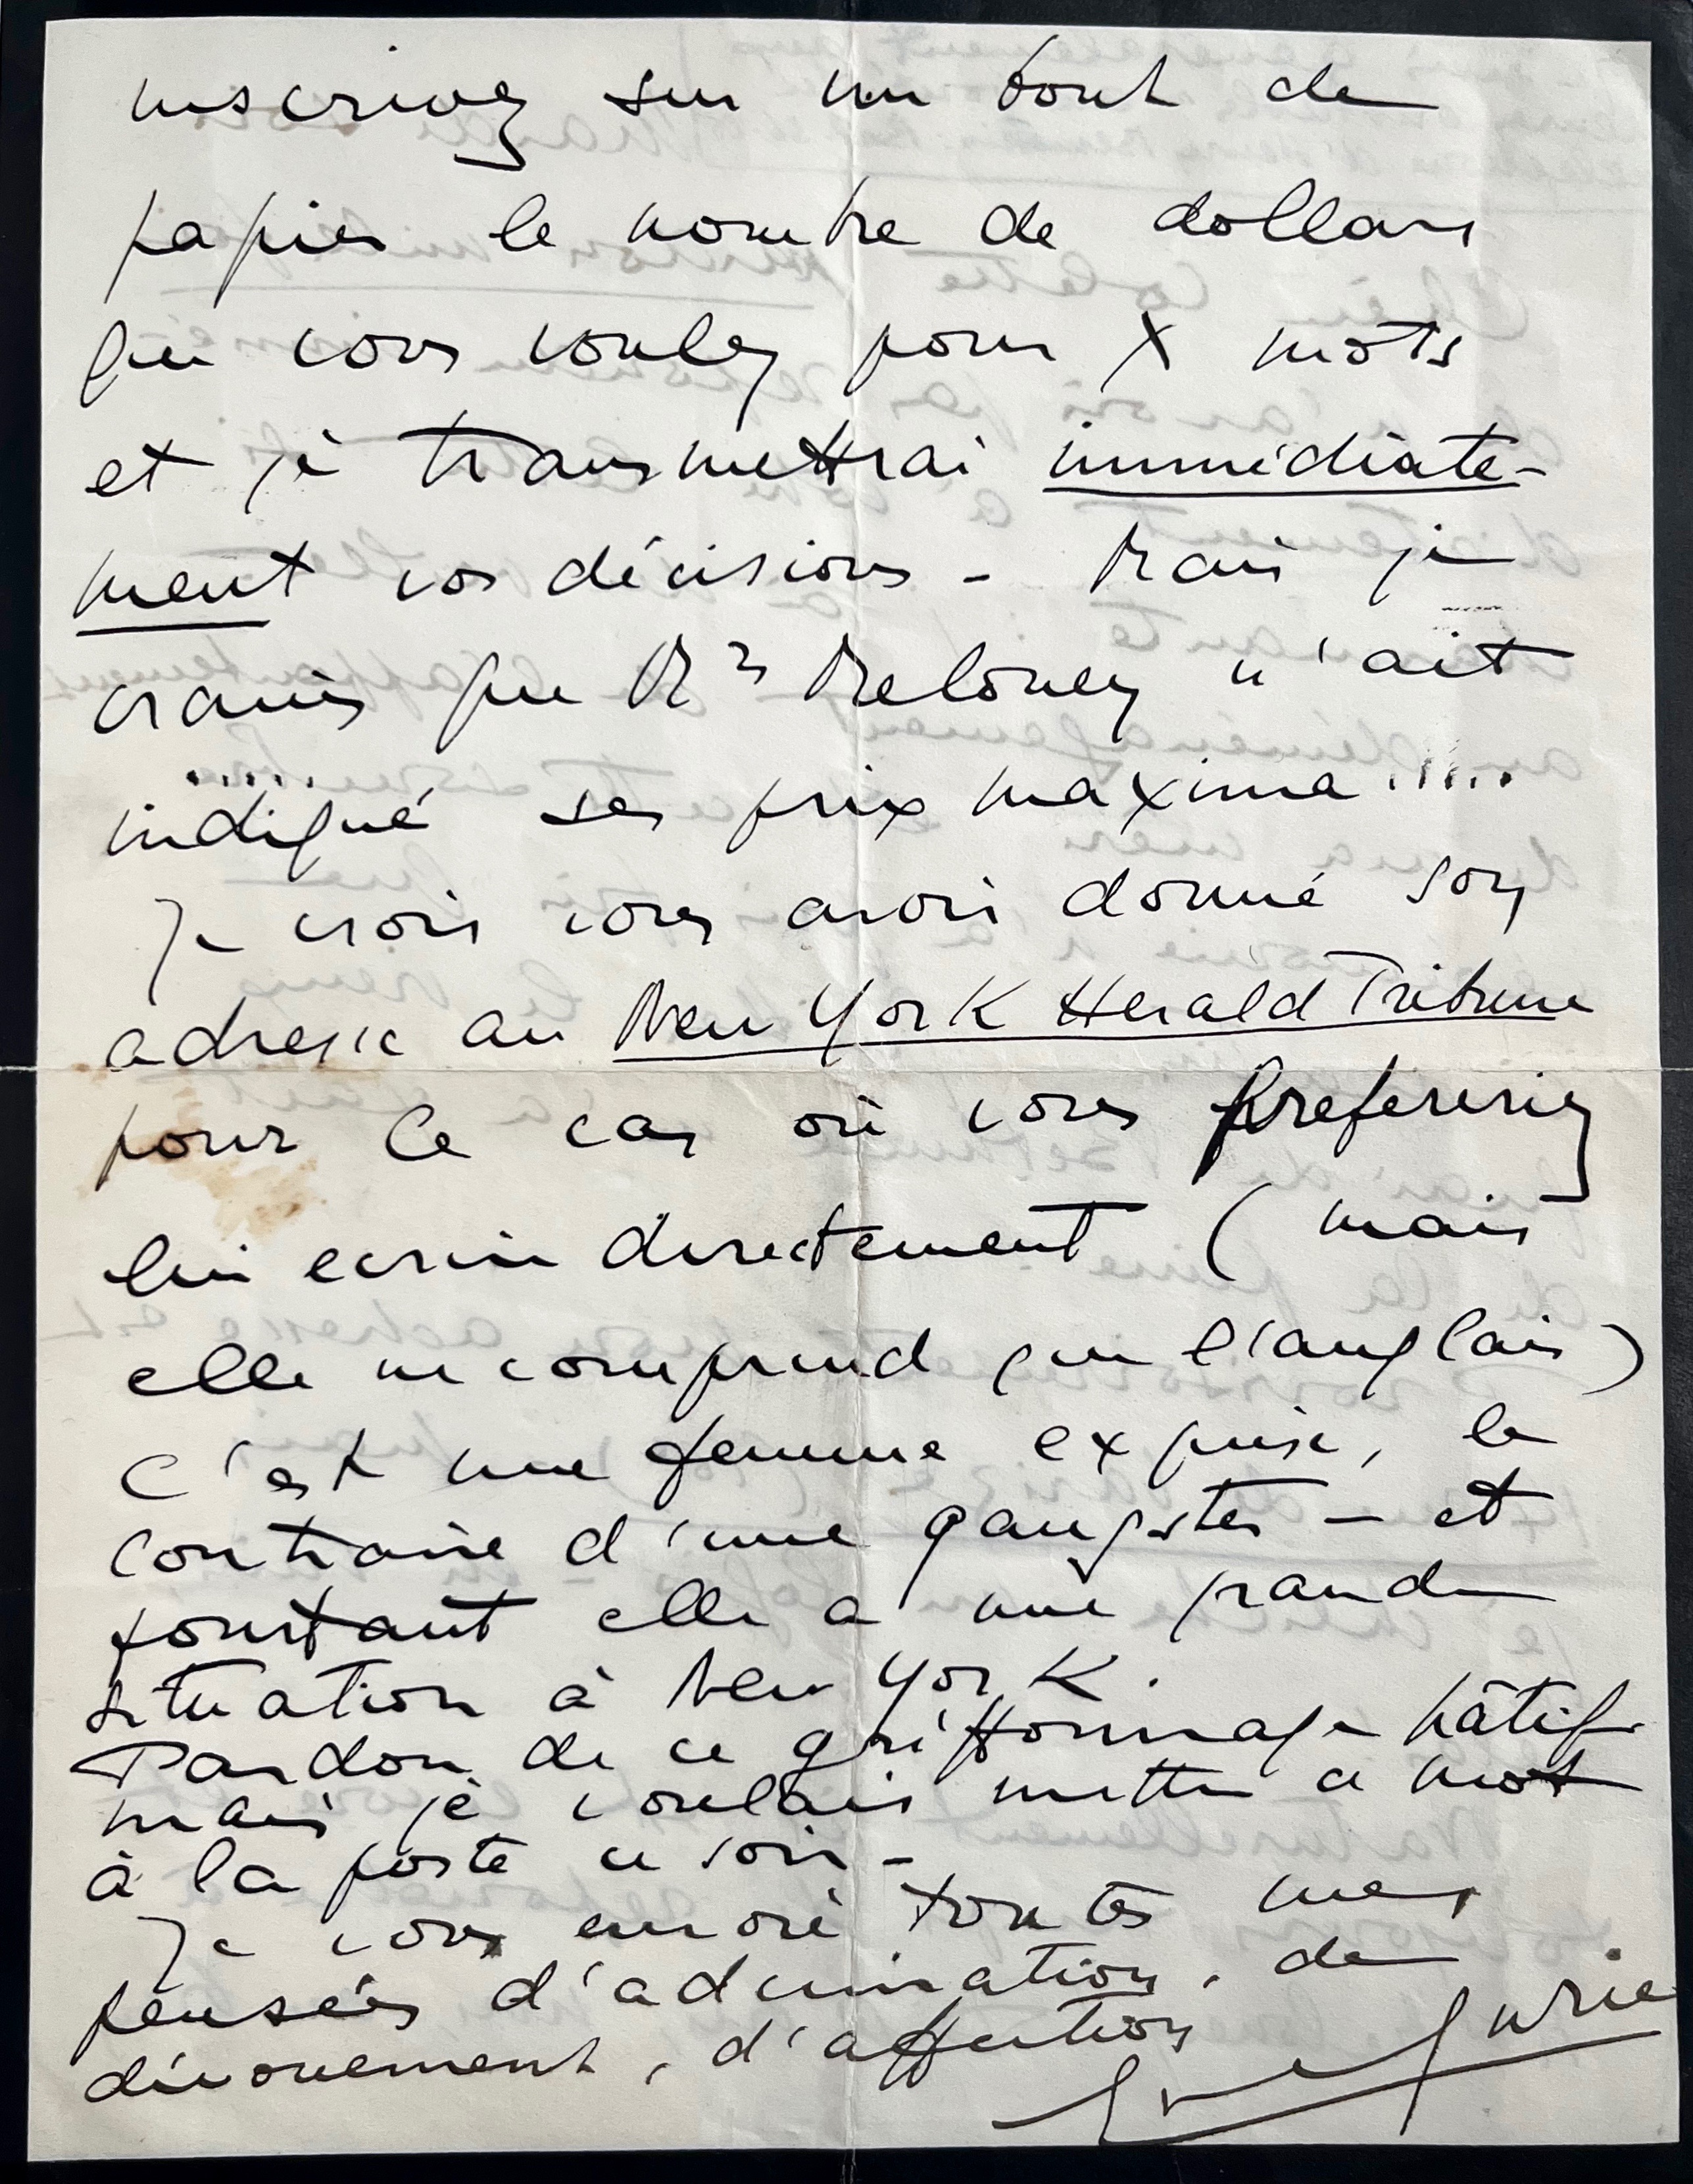 inscrivez sur un bout de
papier le nombre de dollars
que vous voulez pour X mots
et je transmettrai immédiate-
ment vos décisions - Mais je
crains que Mrs Meloney n'ait
indiqué ses prix maxima.....
Je crois vous avoir donné son
adresse au New York Herald Tribune
pour le cas où vous prefereriez
lui ecrire directement (mais
elle ne comprend que l'anglais)
C'est une femme exquise, le
contraire d'une gangster - et
pourtant elle a une grande
situation à New York.
Pardon de ce griffonnage hâtif
mais je voulais mettre ce mot
à la poste ce soir -
Je vous envoie toutes mes
pensées d'admiration, de
dévouement, d'affection
Eve Curie